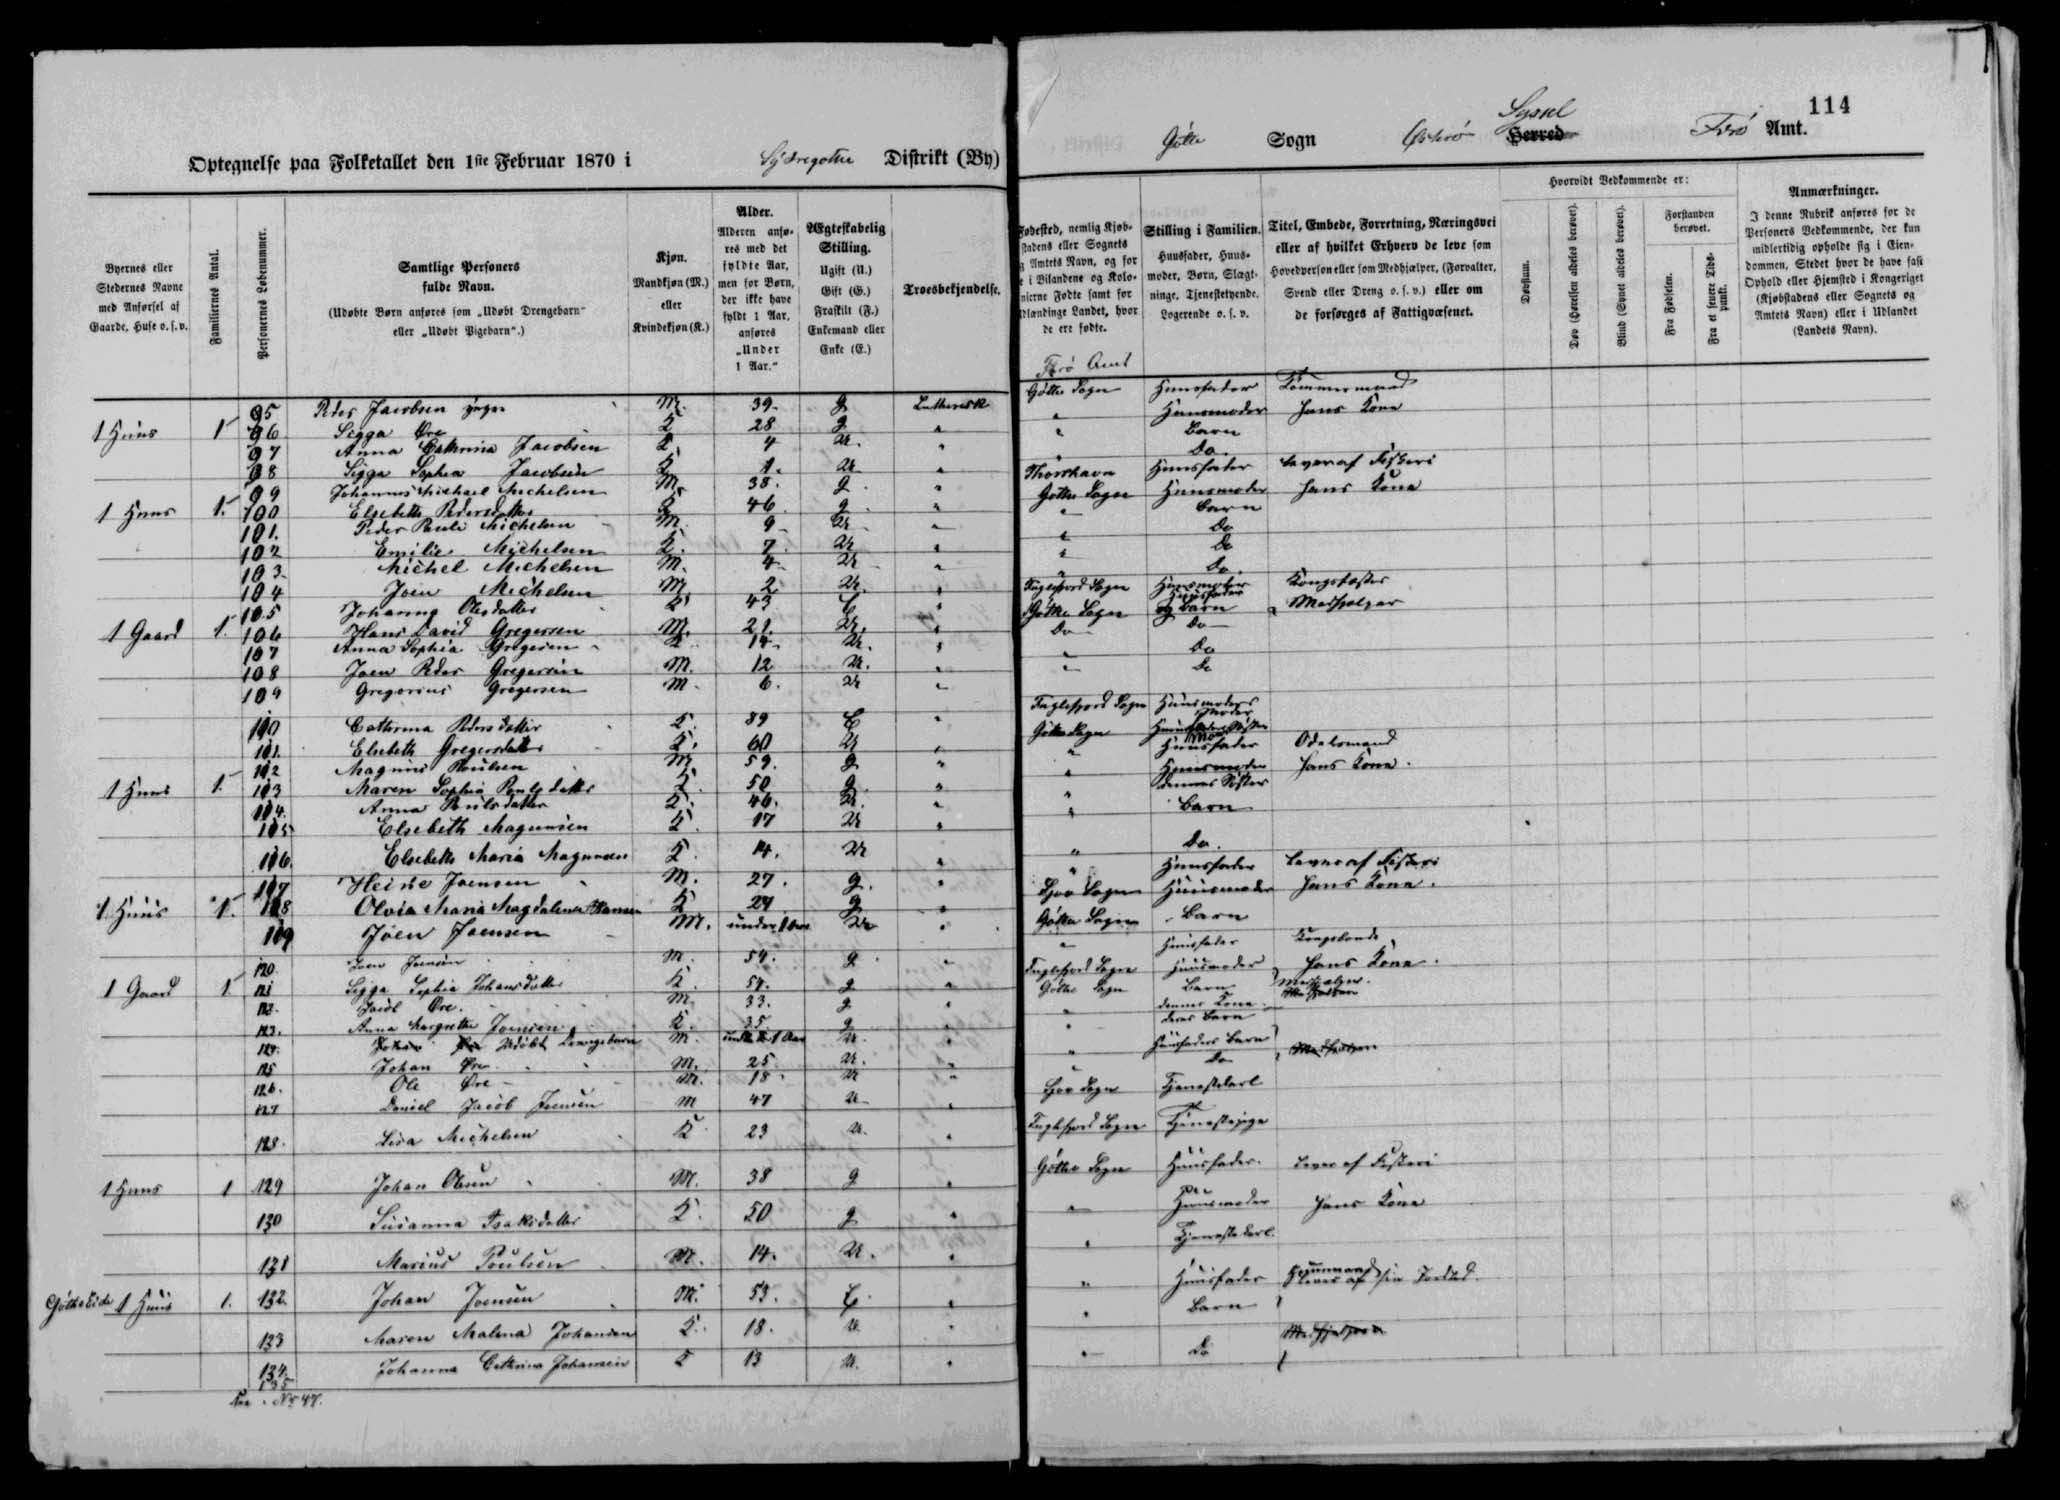 114
Optegnelse paa Folketallet den 1ste Februar 1870 i Sydregøthe Distrikt (By)
Gøthe Sogn Østerø Syssel Herred Færø Amt.
Byernes eller Stedernes Navne med Anførsel af Gaarde, Huse o. s. v.
Familiernes Antal.
Personernes Løbenummer.
Samtlige Personers fulde Navn.
(Udøbte Børn anføres som „Udøbt Drengebarn" eller „Udøbt Pigebarn".)
Kjøn. Mandkjøn (M.) eller Kvindekjøn (K.)
Alder. Alderen anføres med det fyldte Aar, men for Børn, der ikke have fyldt 1 Aar, anføres „Under 1 Aar."
Ægteskabelig Stilling. Ugift (U.) Gift (G.) Fraskilt (F.) Enkemand eller Enke (E.)
Troesbekjendelse.
Fødested, nemlig Kjøbstadens eller Sognets og Amtets Navn, og for de i Bilandene og Kolonierne Fødte samt for Udlændinge Landet, hvor de ere fødte.
Stilling i Familien. Huusfader, Huusmoder, Børn, Slægtninge, Tjenestetyende, Logerende o. s. v.
Titel, Embede, Forretning, Næringsvei eller af hvilket Erhverv de leve som Hovedperson eller som Medhjælper, (Forvalter, Svend eller Dreng o. s. v.) eller om de forsørges af Fattigvæsenet.
Hvorvidt Vedkommende er:
Døvstum.
Døv (Hørelsen aldeles berøvet).
Blind (Synet aldeles berøvet).
Forstanden berøvet.
Fra Fødselen.
Fra et senere Tidspunkt.
Anmærkninger.
I denne Rubrik anføres for de Personers Vedkommende, der kun midlertidig opholde sig i Eiendommen, Stedet hvor de have fast Ophold eller Hjemsted i Kongeriget (Kjøbstadens eller Sognets og Amtets Navn) eller i Udlandet (Landets Navn).
Færø Amt
95 Peder Jacobsen yngre M. 39 g Luthersk Gøthe Sogn Huusfader Tømmermand
1 Huus 1 96 Sigga Øre K 28 g " " Huusmoder hans Kone
97 Anna Cathrina Jacobsen K. 4 U. " " Barn
98 Sigga Sophia Jacobsen K 1. U " " Do.
99 Johannes Michael Michelsen M. 38. g. " Thorshavn Huusfader Lever af Fiskeri
1 Huus 1. 100 Elsebeth Pedersdatter K 46 g " Gøthe Sogn Huusmoder hans Kone
101. Peder Pauli Michelsen M 9 U " " Barn
102 Emilie Michelsen K. 7 U " " Do
103 Michel Michelsen M. 4 U " " Do
104 Joen Michelsen M 2 U. " " Do.
105 Johanna Olesdatter K 43 E " Fuglefjord Sogn Huusmoder Kongsfæster
1 Gaard 1. 106 Hans David Gregersen M. 21. U. " Gøthe Sogn Barn
107 Anna Sophia Gregersen K 14 U. " Do Do
108 Joen Peder Gregersen M. 12 U. " " Do
109 Gregorius Gregersen M. 6. U " " Do
110 Cathrina Pedersdatter K. 89 E " Fuglefjord Sogn Huusmoders Moder
111. Elsebeth Gregersdatter K. 60 U " Gøthe Sogn
112 Magnus Poulsen M 59. g " " Huusfader Odelsmand
1 Huus 1. 113 Maren Sophia Poulsdatter K 50 g " " Huusmoder hans Kone.
114. Anna Poulsdatter K. 46. U. " " dennes Søster
115 Elsebeth Magnusen K. 17 U " " Barn
116. Elsebeth Maria Magnusen K 14. U " " Do.
117 Heine Joensen M. 27. g. " " Huusfader Lever af Fiskeri
1 Huus 1. 118 Olvia Maria Magdalena Hansen K 24 g " Sogn Huusmoder hans Kone.
119 Joen Joensen M. under 1 Aar U " Gøthe Sogn Barn
120. Joen Joensen M. 54. g " " Huusfader Kongsbonde
1 Gaard 1. 121 Sigga Sophia Johansdatter K. 54. g " Fuglefjord Sogn Huusmoder hans Kone.
122. Jacob Øre. M. 33. g " Gøthe Sogn Barn
123. Anna Margrethe Joensen K. 35. g " " dennes Kone
124. Udøbt Drengebarn M. under 1 Aar U. " " deres Barn
125 Johan Øre M. 25 U. " " Huusfaders Barn
126. Ole Øre M. 18 U " " Do
127 Daniel Jacob Joensen M 47 U " Sogn Tjenestekarl
128. Lisa Michelsen K 23 U. " Fuglefjord Sogn Tjenestepige
1 Huus 1 129 Johan Olsen M. 38 g " Gøthe Sogn Huusfader. Lever af Fiskeri
130 Susanna Isaksdatter K. 50 g " " Huusmoder hans Kone
131 Marius Poulsen M. 14. U. " " Tjenestekarl.
Gøthe Eide 1 Huus 1. 132. Johan Joensen M. 53. E. " " Huusfader Lever af sin Jordlod.
133 Maren Malena Johansen K. 18. U. " " Barn
134 Johanna Cathrina Johansen K 13 U. " " Do
135